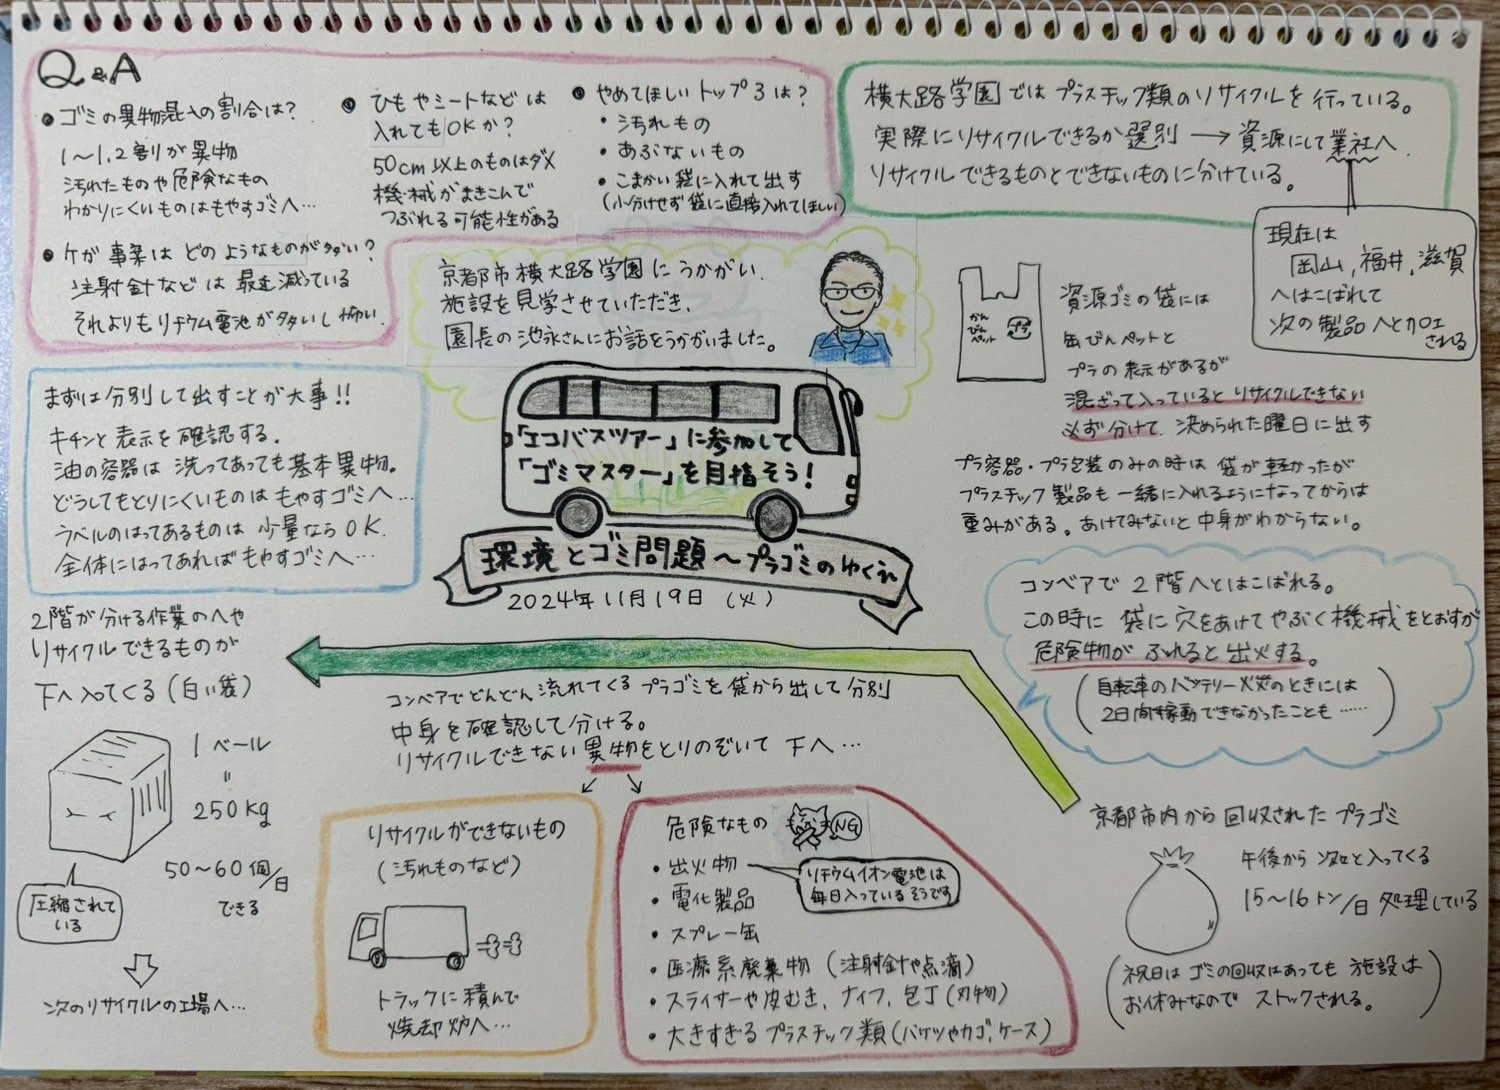 Q&A
・ゴミの異物混入の割合は?
1〜1,2割が異物
汚れたものや危険なもの
わかりにくいものはもやすゴミへ…
・ケガ事案はどのようなものが多い?
注射針などは最近減っている
それよりもリチウム電池が多いし怖い.
・ひもやシートなどは
入れてもOKか?
50cm以上のものはダメ
機械がまきこんで
つぶれる可能性がある
・やめてほしいトップ3は?
・汚れもの
・あぶないもの
・こまかい袋に入れて出す
(小分けせず袋に直接入れてほしい)
横大路学園ではプラスチック類のリサイクルを行っている。
実際にリサイクルできるか選別→資源にして業社へ.
リサイクルできるものとできないものに分けている。
現在は
岡山,福井,滋賀
へはこばれて
次の製品へと加工
される
京都市横大路学園にうかがい、
施設を見学させていただき、
園長の池永さんにお話をうかがいました。
かん
びん
ペット
プラ
資源ゴミの袋には
缶びんペットと
プラの表示があるが
混ざって入っているとリサイクルできない
必ず分けて、決められた曜日に出す
プラ容器・プラ包装のみの時は袋が軽かったが
プラスチック製品も一緒に入れるようになってからは
重みがある。あけてみないと中身がわからない。
まずは分別して出すことが大事!!
キチンと表示を確認する.
油の容器は洗ってあっても基本異物。
どうしてもとりにくいものはもやすゴミへ…
ラベルのはってあるものは少量ならOK.
全体にはってあればもやすゴミへ…
「エコバスツアー」に参加して
「ゴミマスター」を目指そう!
環境とゴミ問題〜プラゴミのゆくえ
2024年11月19日(火)
コンベアで2階へとはこばれる。
この時に袋に穴をあけてやぶく機械をとおすが
危険物がふれると出火する。
(自転車のバッテリー火災のときには
2日間稼動できなかったことも……)
2階が分ける作業のへや
リサイクルできるものが
下へ入ってくる(白い袋)
1ベール
=
250kg
50〜60個/日
できる
圧縮されて
いる
次のリサイクルの工場へ…
コンベアでどんどん流れてくるプラゴミを袋から出して分別
中身を確認して分ける。
リサイクルできない異物をとりのぞいて下へ…
リサイクルができないもの
(汚れものなど)
トラックに積んで
焼却炉へ…
危険なもの
NG
・出火物
リチウムイオン電池は
毎日入っているそうです
・電化製品
・スプレー缶
・医療系廃棄物(注射針や点滴)
・スライサーや皮むき、ナイフ、包丁(刃物)
・大きすぎるプラスチック類(バケツやカゴ、ケース)
京都市内から回収されたプラゴミ
午後から次々と入ってくる
15〜16トン/日処理している
(祝日はゴミの回収はあっても施設は
お休みなのでストックされる。)